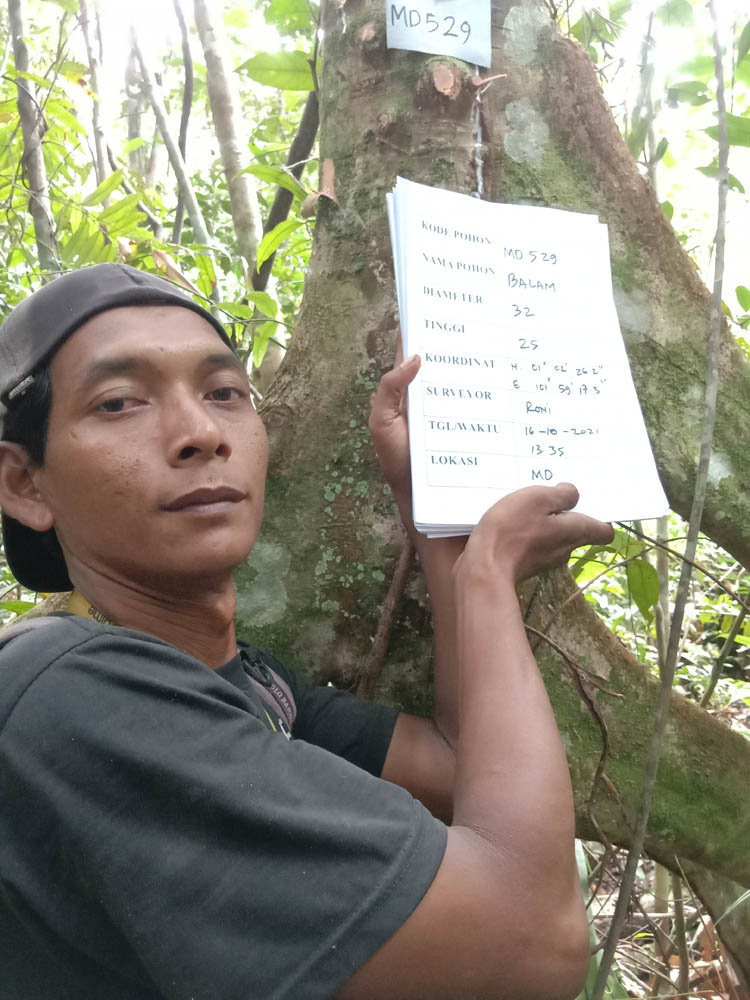 MD529
KODE POHON MD 529
NAMA POHON BALAM
DIAMETER 32
TINGGI 25
KOORDINAT N. 01° 02' 26.2"
E 101° 59' 17.3"
SURVEYOR RONI
TGL/WAKTU 16-10-2021
13.35
LOKASI MD